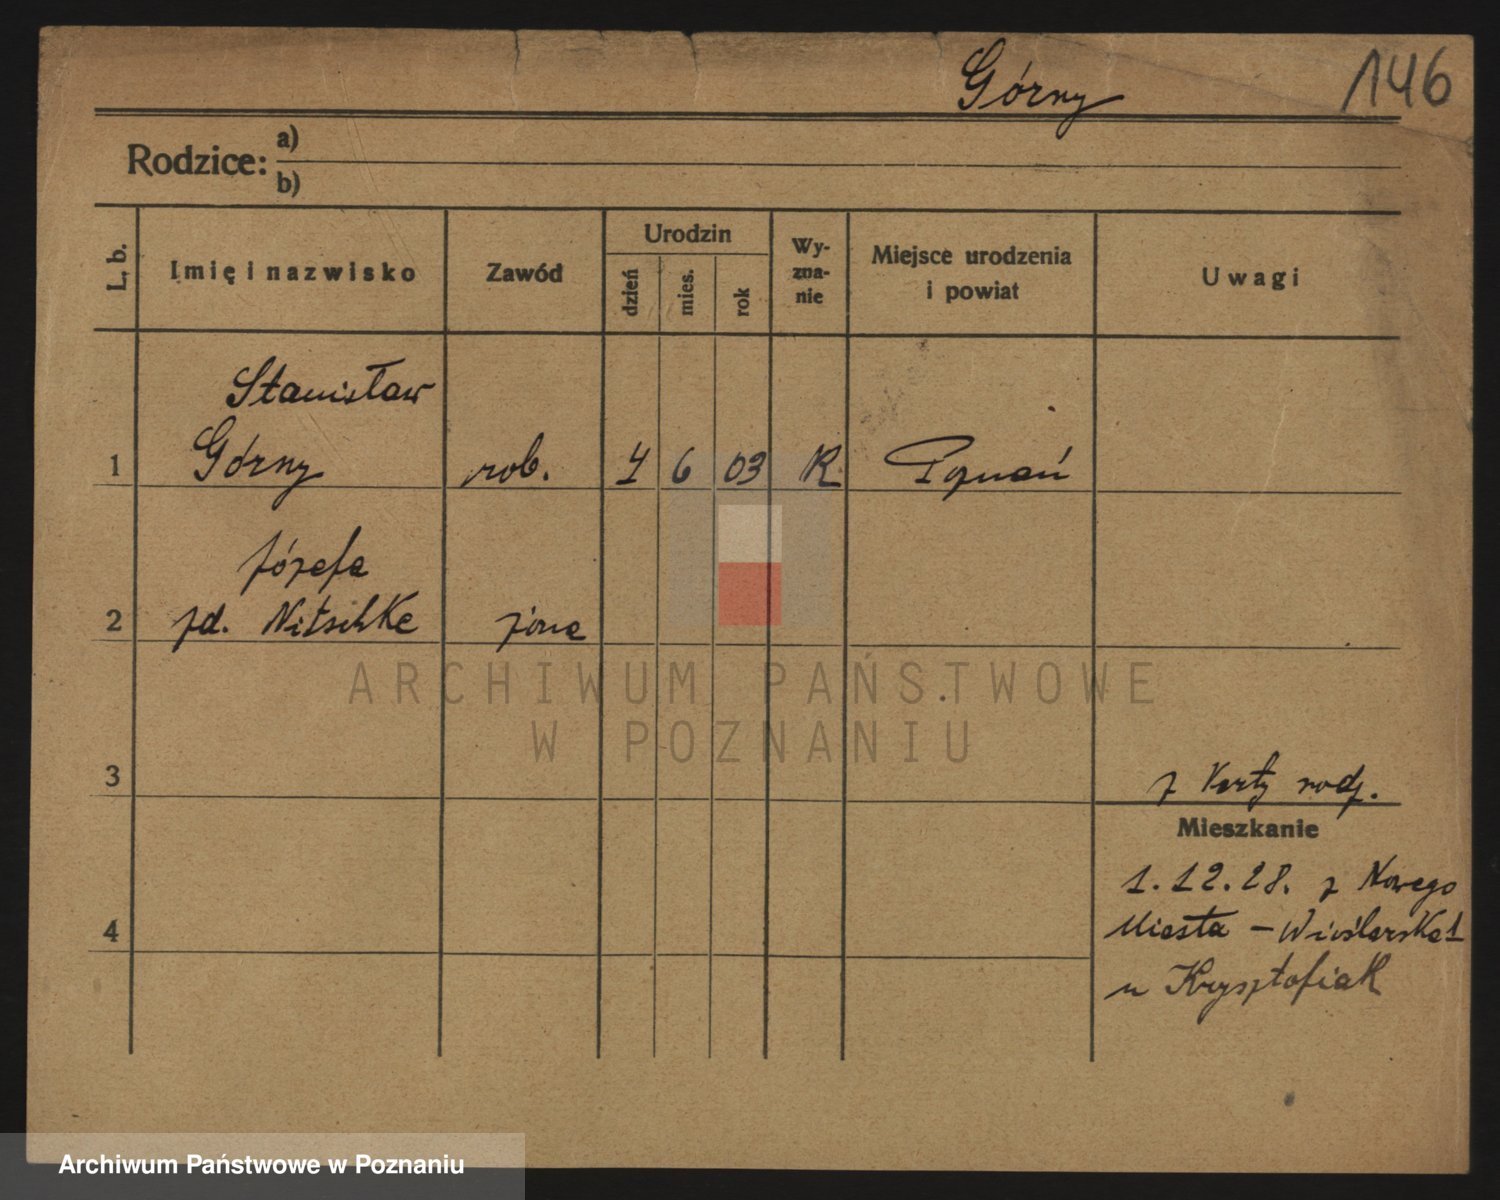 Górny
146
Rodzice:
a)
b)
L. b.
Imię i nazwisko
Zawód
Urodzin
dzień
mies.
rok
Wy-
zna-
nie
Miejsce urodzenia
i powiat
Uwagi
Stanisław
1 Górny rob. 4 6 03 R. Poznań
Józefa
2 zd. Nitschke żona
ARCHIWUM PAŃSTWOWE
W POZNANIU
3
z Karty rodz.
Mieszkanie
1.12.28. z Nowego
4
Miasta – Wioślarska 1
u Krysztofiak
Archiwum Państwowe w Poznaniu